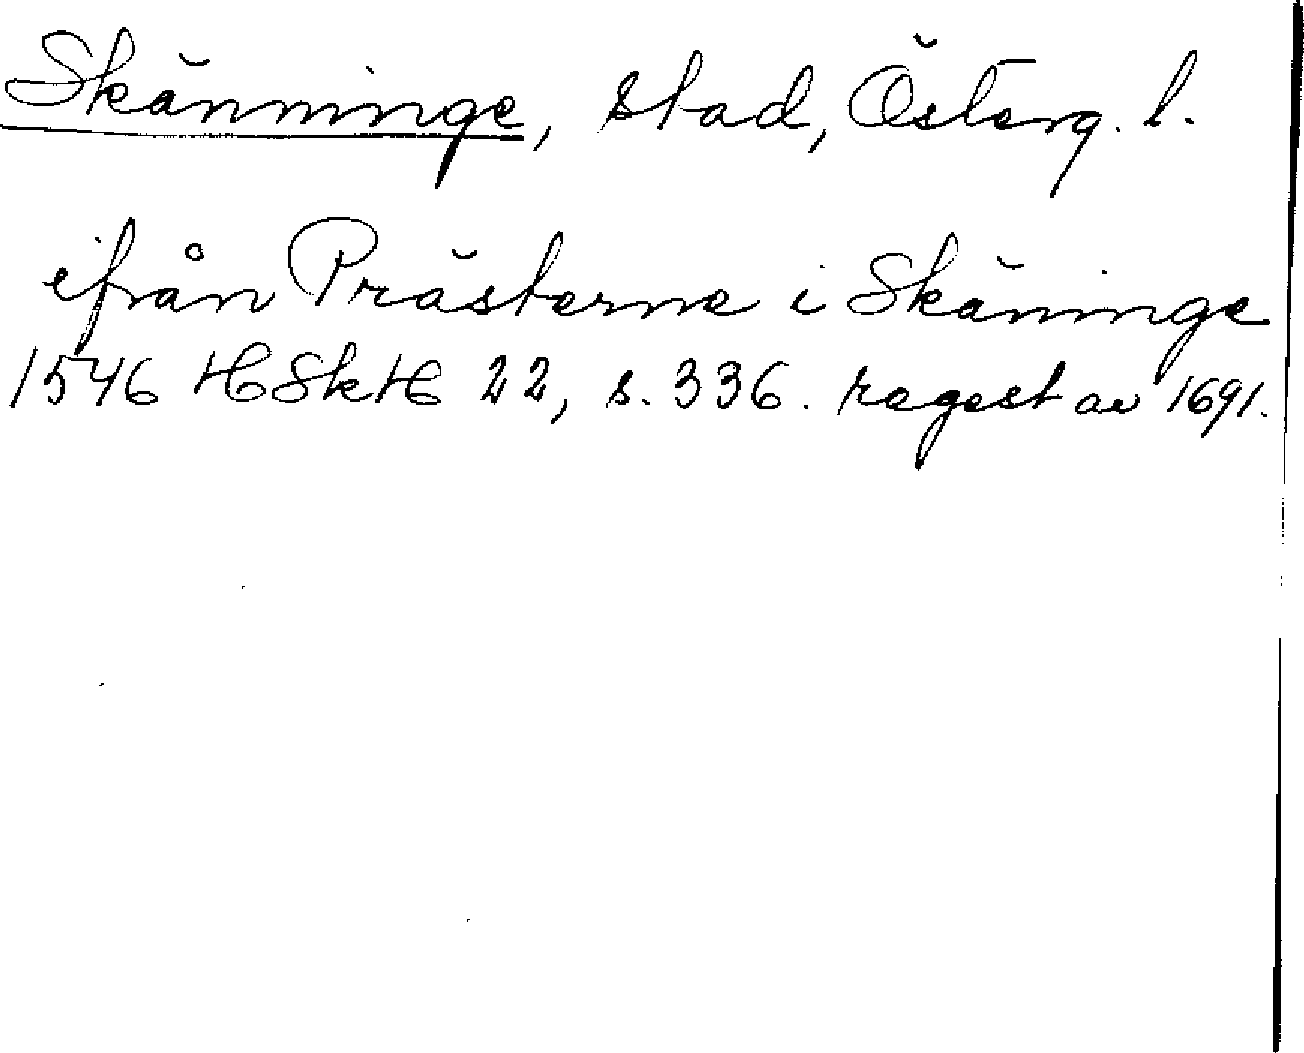 Skänninge, stad, Österg. l.
ifrån Prästerne i Skäninge
1546 HSkH 22, s. 336. regest av 1691.